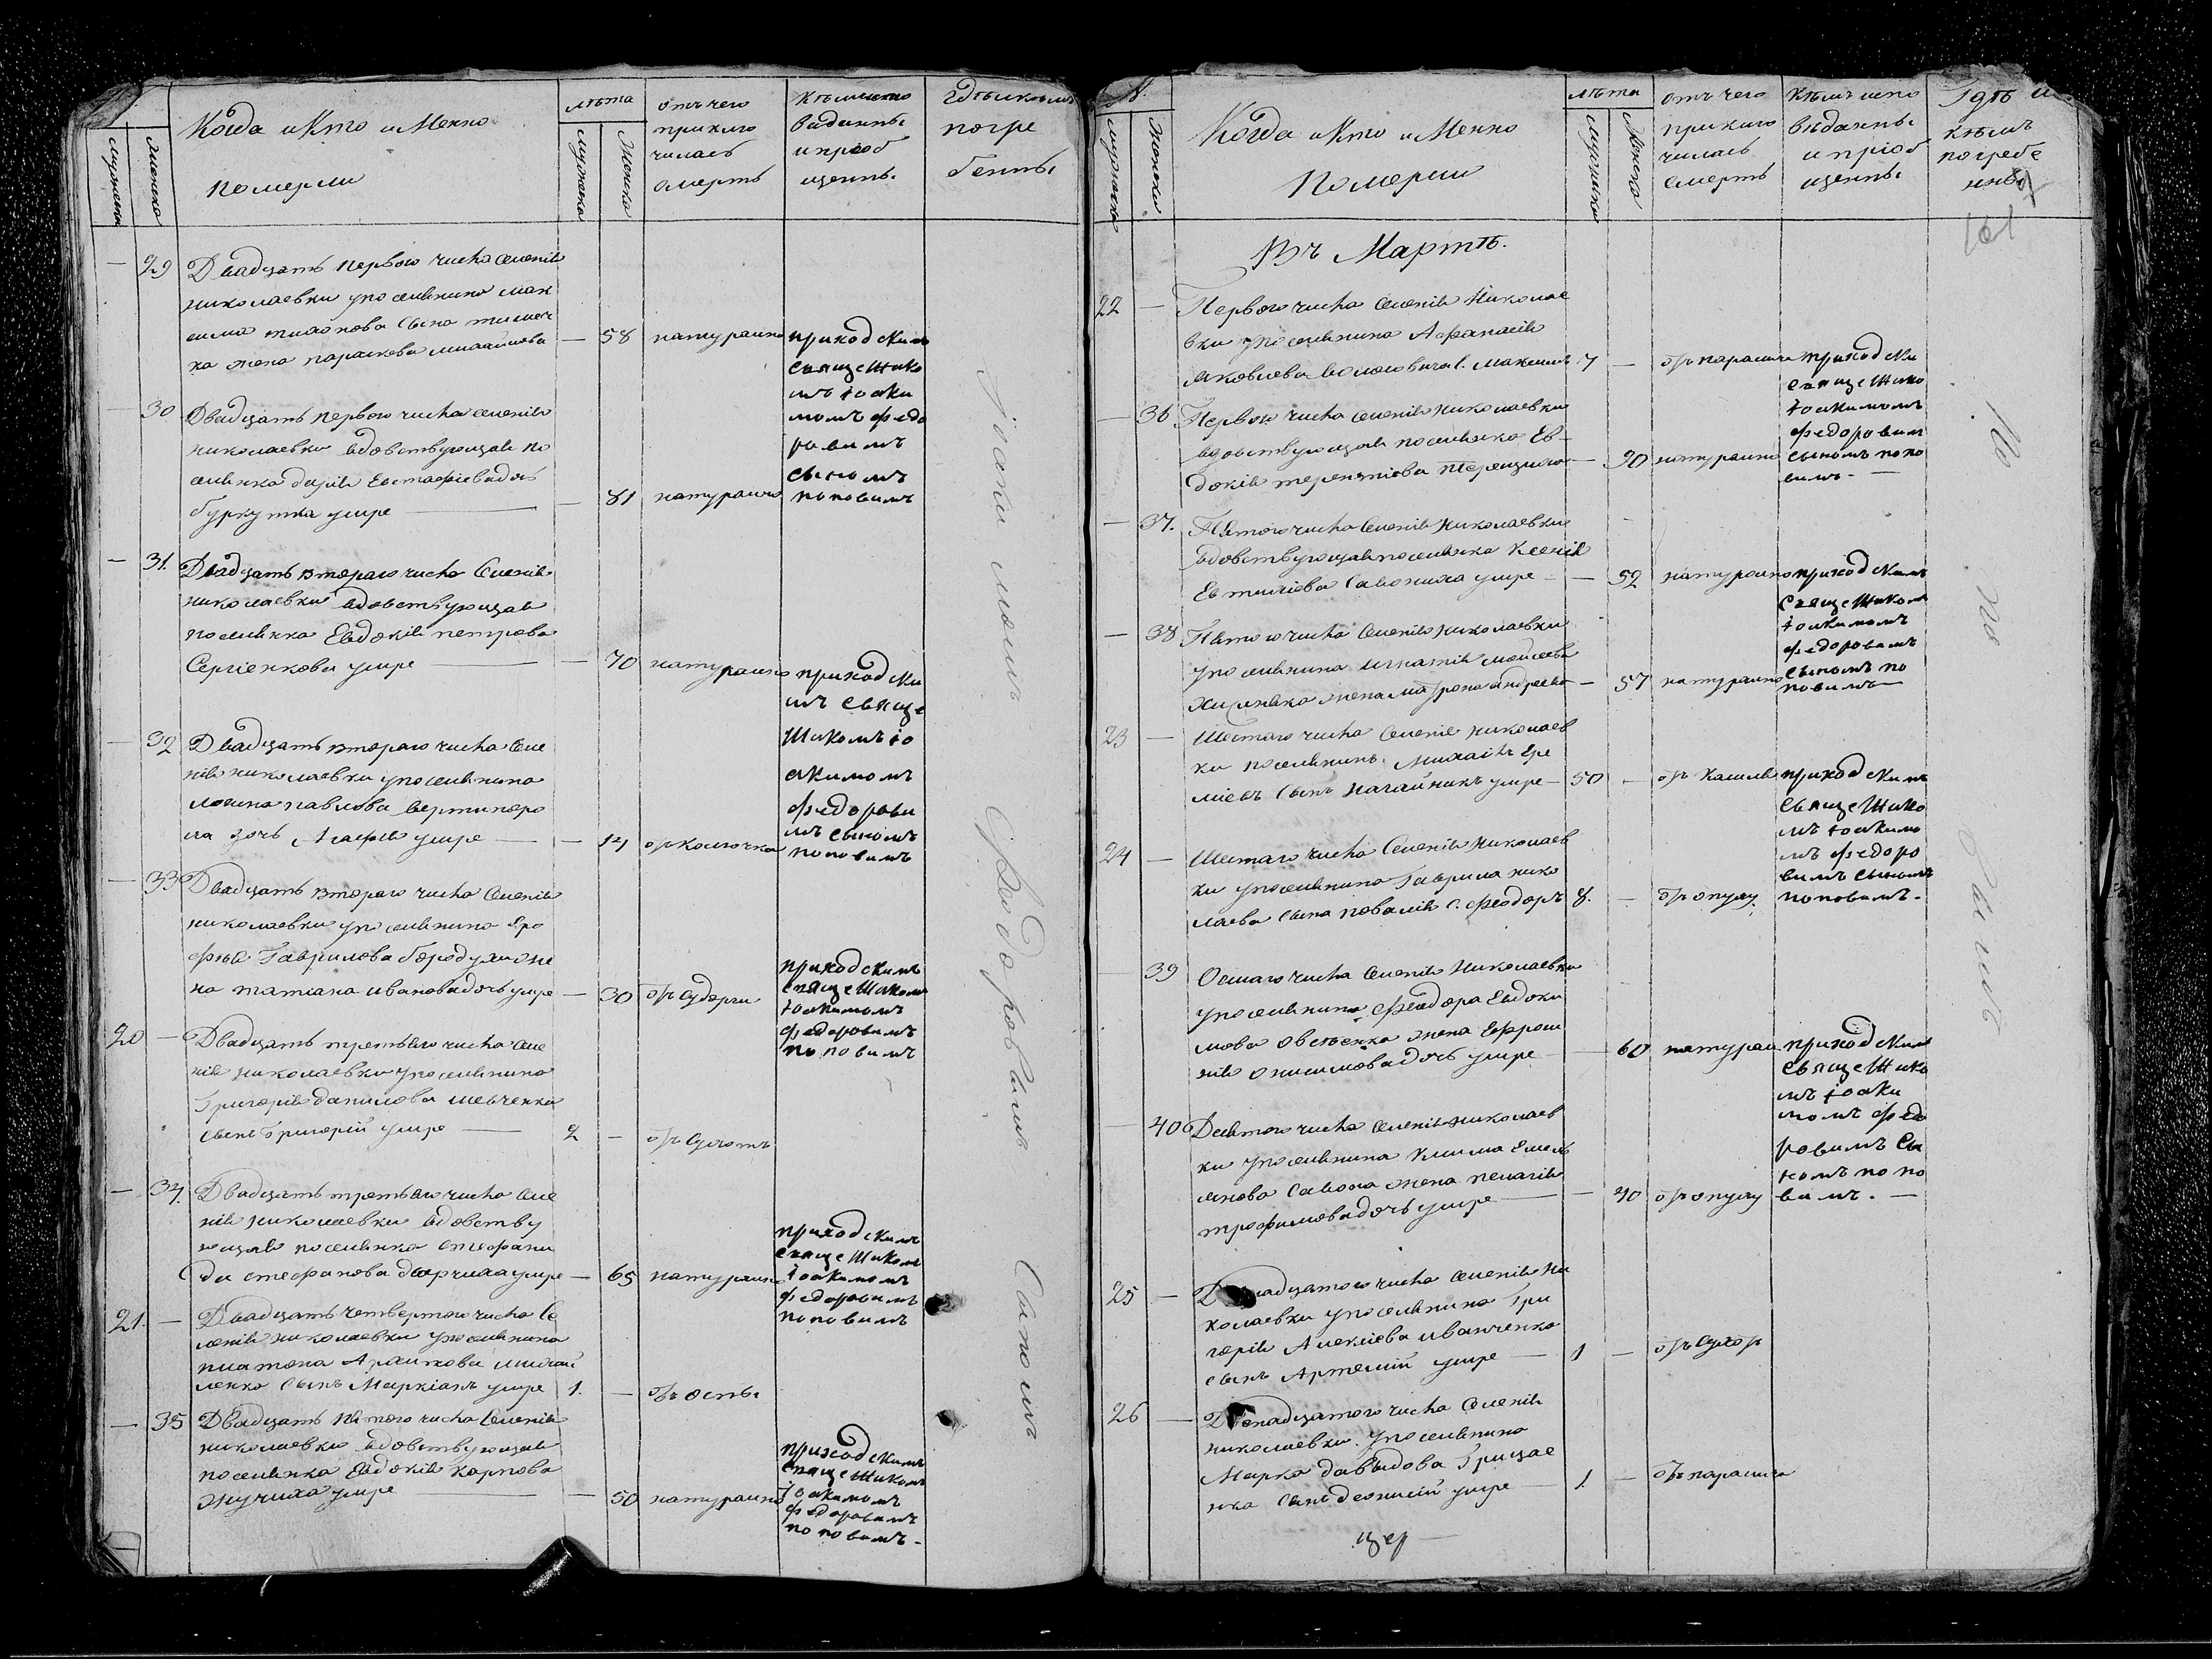 Когда и Кто и Менно
померли
лѣта
мужеска
женска
отъ чего
приклю
чилась
смерть
Кѣмъ испо
виданны
и пріоб
щенны
гдѣ и кѣмъ
погре
бенны
29
Двадцать первого числа Селенія
николаевки у поселянина мак
сима
ка жена параскева
58
натурально
приходскимъ
свящешнико
мъ іоаки
момъ федо
ровимъ
сыномъ
поповимъ
30
Двадцать первого числа селенія
николаевки вдовствующая по
селянка дарія Евстафіева дочь
буркутка умре
81
натурально
31.
Двадцать втораго числа Селенія
николаевки вдовствующая
поселянка Евдокія петрова
Сергіенкова умре
70
натурально
приходски
мъ свяще
шникомъ іо
акимомъ
федорови
мъ сыномъ
поповимъ
32
Двадцать втораго числа Селе
нія николаевки у поселянина
логина павлова
дочь Агафія умре
14
33
Двадцать втораго числа Селенія
николаевки у поселянина Еро
фѣя Гаврилова бородухи же
на татіана иванова дочь умре
30
приходскимъ
свящешникомъ
іоакимомъ
федоровимъ
поповимъ
20
Двадцать третьяго числа Селе
нія николаевки у поселянина
Григорія данилова шевченка
сынъ Григорій умре
2
отъ сухотъ
34.
Двадцать третьяго числа Селе
нія николаевки вдовству
ющая поселянка стефани
да стефанова умре
65
натурально
приходскимъ
свящешникомъ
іоакимомъ
федоровимъ
поповимъ
21.
Двадцать четвертого числа Се
ленія николаевки у поселянина
платона михай
ленка сынъ Маркіанъ умре
1.
отъ оспы
35
Двадцать пятого числа Селенія
николаевки вдовствующая
поселянка Евдокія карпова
жучиха умре
50
натурально
приходскимъ
свящешникомъ
іоакимомъ
федоровимъ
поповимъ
іоакимомъ Федоровимъ Сыномъ
№.
мужеска
женска
Когда и Кто и Менно
Померли
лѣта
отъ чего
приклю
чилась
смерть
Кѣмъ испо
вѣданны
и пріоб
щенны
Гдѣ и
кѣмъ
погребе
нны
161
Въ Мартѣ.
22
Первого числа Селенія Николае
вки у поселянина Афанасія
Яковлева с. максимъ
7
приходски
свящешнико
іоакимомъ
федоровим
сыномъ попо
вимъ
36
Первого числа Селенія николаевки
вдовствующая поселянка Ев
докія терентіева
90
натурально
37.
Пятого числа Селенія Николаевки
вдовствующая поселянка Ксенія
Евтихіева Савониха умре
52
натурально
приходскимъ
свящешником
іоакимомъ
федоровимъ
сыномъ по
повимъ
38
Пятого числа Селенія николаевки
у поселянина игнатія моисеева
жена матрона андреева
57
натурально
23
Шестаго числа Селенія николаев
ки поселянинъ Михаилъ Ере
міевъ сынъ умре
50
отъ кашля
приходскимъ
свящешнико
мъ іоакимо
мъ федоро
вимъ сыномъ
поповимъ
24
Шестаго числа Селенія Николаев
ки у поселянина Гаврила нико
лаева сына ковалія с. Феодоръ
8.
отъ опуху
39
Осмаго числа Селенія Николаевки
у поселянина Феодора Евдоки
мова овсѣенка жена Ефроси
нія онисимова дочь умре
60
натурал
приходским
свящешнико
мъ іоаки
момъ федо
ровимъ сы
номъ попо
вимъ.
40
Девятого числа Селенія николаев
ки у поселянина Клима Емель
янова Савона жена пелагія
трофимова дочь умре
40
отъ опуху
25
надцатого числа Селенія Ни
колаевки у поселянина Гри
горія Алексіева иванченка
сынъ Артемій умре
1
отъ сухот
26
Двенадцатого числа Селенія
николаевки у поселянина
Марка давыдова Грицае
нка сынъ умре
1.
По по вимъ
цер